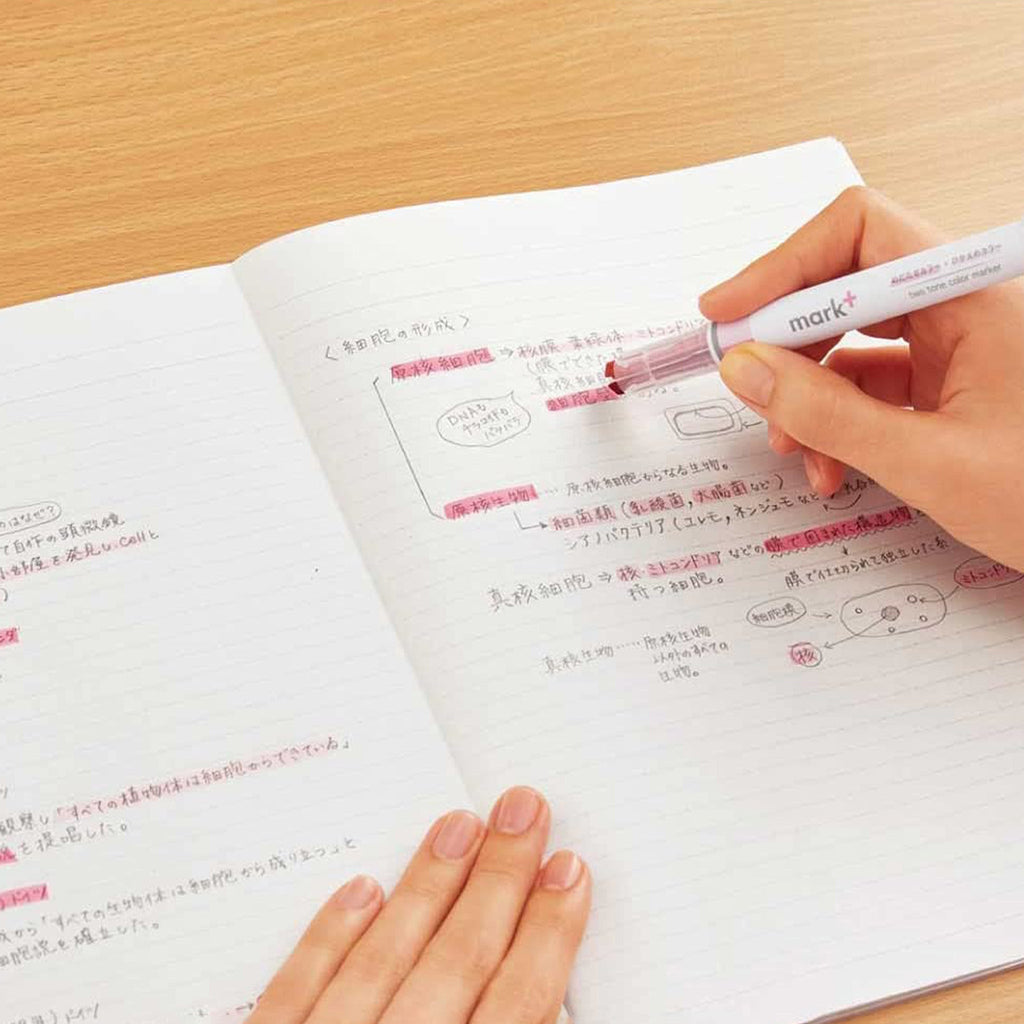 はなぜ?
て自作の顕微鏡
小部屋を発見し、cellと
「すべての植物体は細胞からできている」
観察し
を提唱した。
)ドイツ
から「すべての生物体は細胞から成り立つ」と
細胞説を確立した。
)ドイツ
<細胞の形成>
原核細胞 ⇒ 核膜 葉緑体・ミトコンドリア
(膜でできた
真核細胞
細胞
DNAも
パンパン
原核生物 … 原核細胞からなる生物。
細菌類(乳酸菌,大腸菌など)
シアノバクテリア(ユレモ,ネンジュモなど)
真核細胞 ⇒ 核・ミトコンドリア などの膜で囲まれた構造物
持つ細胞。
膜で仕切られて独立した系
ミトコンドリ
細胞膜
核
真核生物 …… 原核生物
以外のすべての
生物。
mark+
two tone color marker